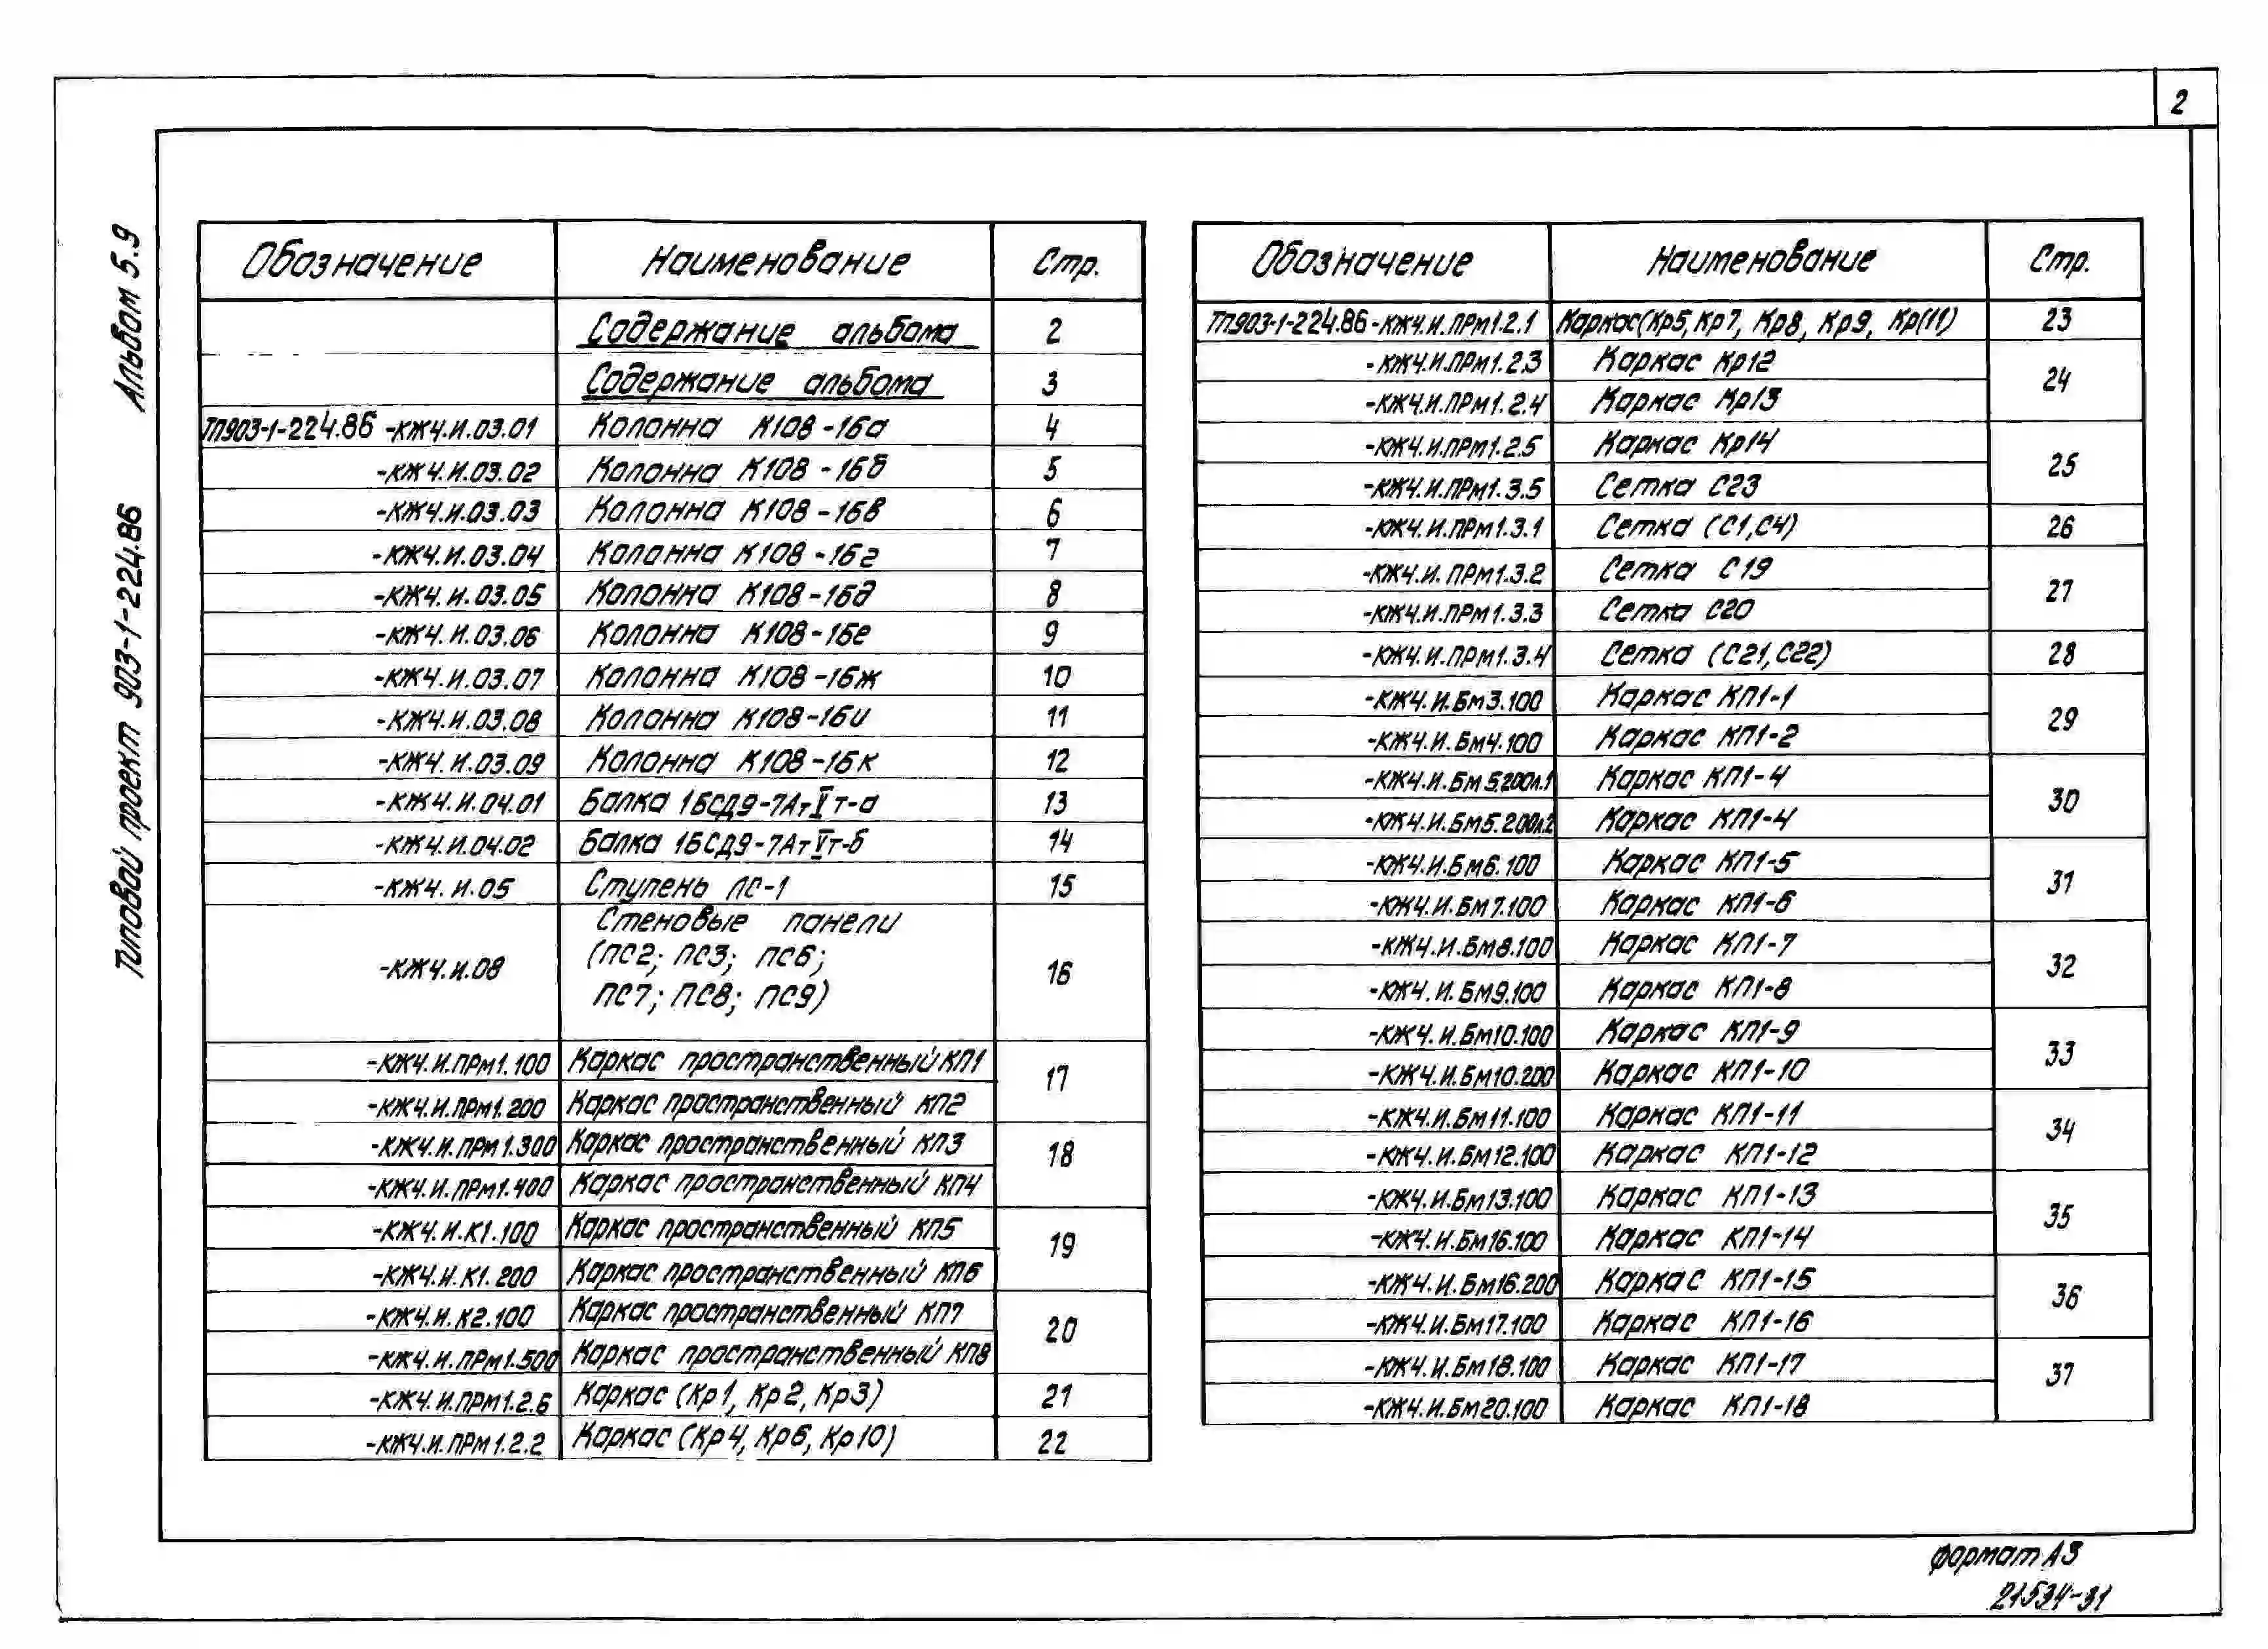 2
Типовой проект 903-1-224.86 Альбом 5.9
Обозначение Наименование Стр.
Содержание альбома 2
Содержание альбома 3
ТП903-1-224.86 -КЖ4.И.03.01 Колонна К108-16а 4
-КЖ4.И.03.02 Колонна К108-16б 5
-КЖ4.И.03.03 Колонна К108-16в 6
-КЖ4.И.03.04 Колонна К108-16г 7
-КЖ4.И.03.05 Колонна К108-16д 8
-КЖ4.И.03.06 Колонна К108-16е 9
-КЖ4.И.03.07 Колонна К108-16ж 10
-КЖ4.И.03.08 Колонна К108-16и 11
-КЖ4.И.03.09 Колонна К108-16к 12
-КЖ4.И.04.01 Балка 1БСД9-7АтVт-а 13
-КЖ4.И.04.02 Балка 1БСД9-7АтVт-б 14
-КЖ4.И.05 Ступень ЛС-1 15
Стеновые панели
-КЖ4.И.08 (ПС2; ПС3; ПС6; 16
ПС7; ПС8; ПС9)
-КЖ4.И.ПРм1.100 Каркас пространственный КП1 17
-КЖ4.И.ПРм1.200 Каркас пространственный КП2
-КЖ4.И.ПРм1.300 Каркас пространственный КП3 18
-КЖ4.И.ПРм1.400 Каркас пространственный КП4
-КЖ4.И.К1.100 Каркас пространственный КП5 19
-КЖ4.И.К1.200 Каркас пространственный КП6
-КЖ4.И.К2.100 Каркас пространственный КП7 20
-КЖ4.И.ПРм1.500 Каркас пространственный КП8
-КЖ4.И.ПРм1.2.6 Каркас (Кр1, Кр2, Кр3) 21
-КЖ4.И.ПРм1.2.2 Каркас (Кр4, Кр6, Кр10) 22
Обозначение Наименование Стр.
ТП903-1-224.86-КЖ4.И.ПРм1.2.1 Каркас(Кр5, Кр7, Кр8, Кр9, Кр(11) 23
-КЖ4.И.ПРм1.2.3 Каркас Кр12 24
-КЖ4.И.ПРм1.2.4 Каркас Кр13
-КЖ4.И.ПРм1.2.5 Каркас Кр14 25
-КЖ4.И.ПРм1.3.5 Сетка С23
-КЖ4.И.ПРм1.3.1 Сетка (С1, С4) 26
-КЖ4.И.ПРм1.3.2 Сетка С19 27
-КЖ4.И.ПРм1.3.3 Сетка С20
-КЖ4.И.ПРм1.3.4 Сетка (С21, С22) 28
-КЖ4.И.Бм3.100 Каркас КП1-1 29
-КЖ4.И.Бм4.100 Каркас КП1-2
-КЖ4.И.Бм5.200л.1 Каркас КП1-4 30
-КЖ4.И.Бм5.200л.2 Каркас КП1-4
-КЖ4.И.Бм6.100 Каркас КП1-5 31
-КЖ4.И.Бм7.100 Каркас КП1-6
-КЖ4.И.Бм8.100 Каркас КП1-7 32
-КЖ4.И.Бм9.100 Каркас КП1-8
-КЖ4.И.Бм10.100 Каркас КП1-9 33
-КЖ4.И.Бм10.200 Каркас КП1-10
-КЖ4.И.Бм11.100 Каркас КП1-11 34
-КЖ4.И.Бм12.100 Каркас КП1-12
-КЖ4.И.Бм13.100 Каркас КП1-13 35
-КЖ4.И.Бм16.100 Каркас КП1-14
-КЖ4.И.Бм16.200 Каркас КП1-15 36
-КЖ4.И.Бм17.100 Каркас КП1-16
-КЖ4.И.Бм18.100 Каркас КП1-17 37
-КЖ4.И.Бм20.100 Каркас КП1-18
формат А3
21534-31